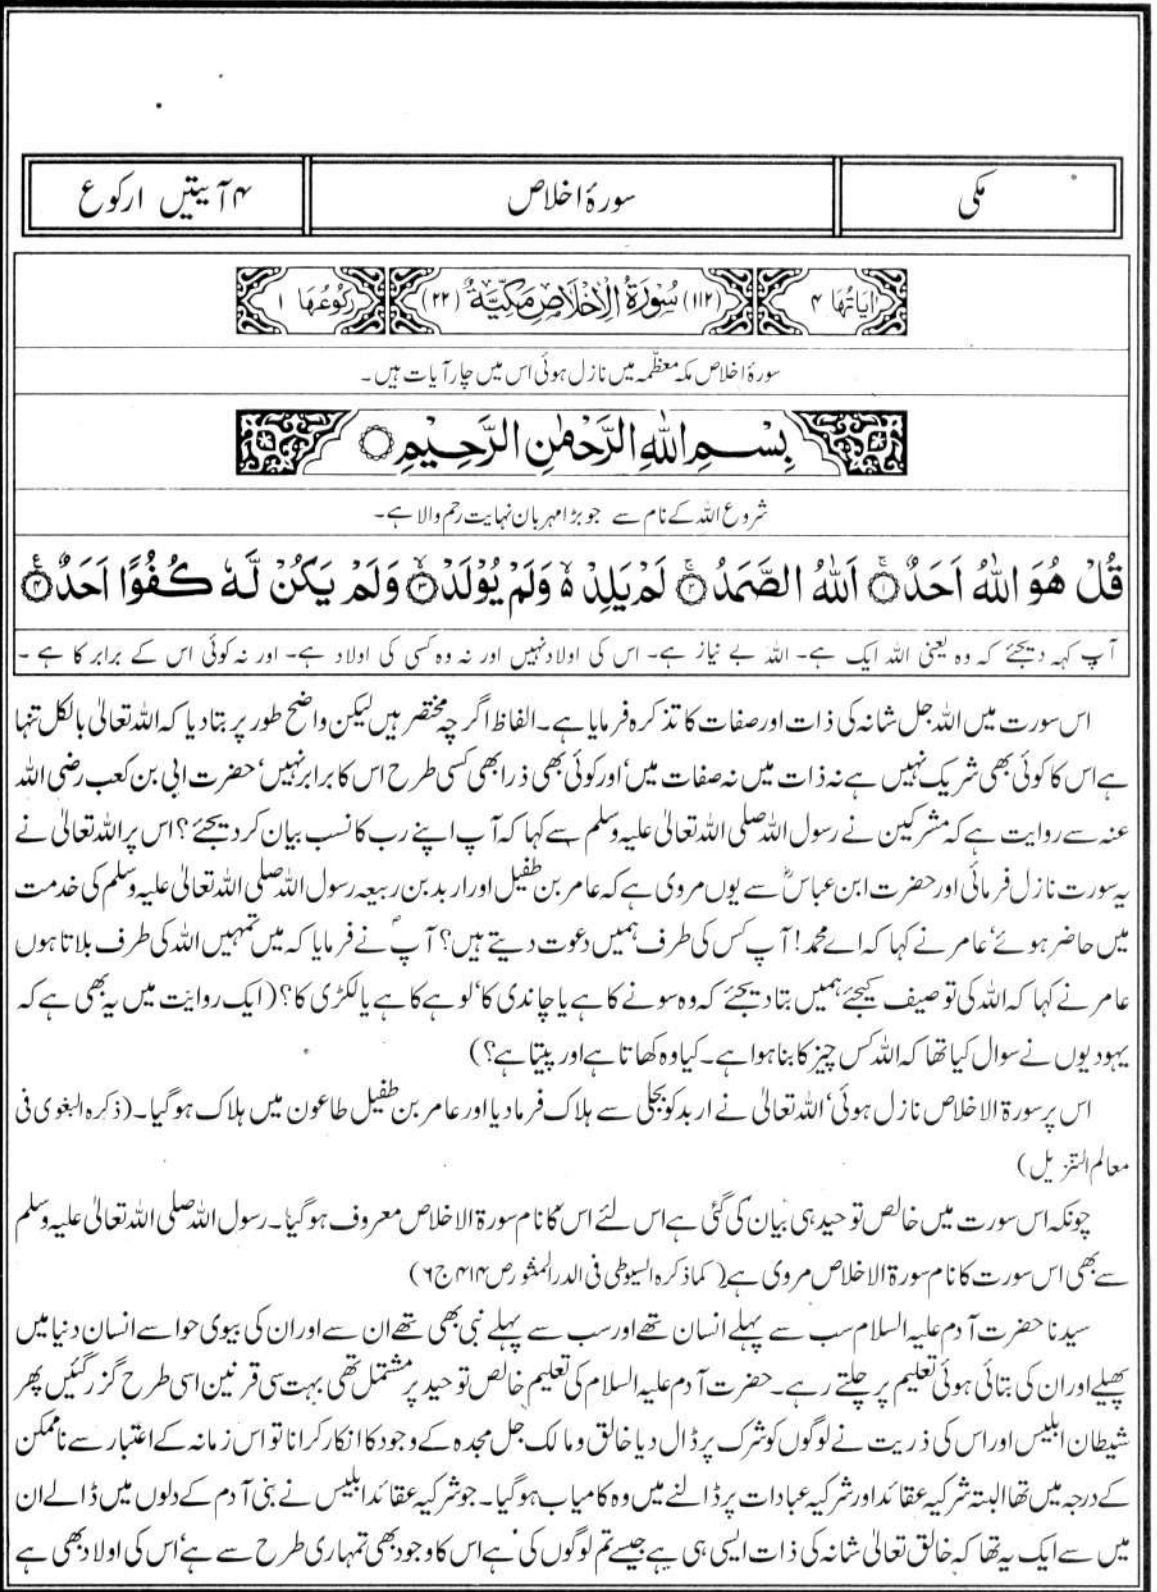 مکی سورۂ اخلاص ۴ آیتیں ارکوع
اٰیَاتُهَا ۴ (۱۱۲) سُوْرَةُ الْاِخْلَاصِ مَكِّيَّةٌ (۲۲) رُكُوْعُهَا ۱
سورۂ اخلاص مکہ معظّمہ میں نازل ہوئی اس میں چار آیات ہیں۔
بِسْمِ اللّٰهِ الرَّحْمٰنِ الرَّحِيْمِ
شروع اللہ کے نام سے جو بڑا مہربان نہایت رحم والا ہے۔
قُلْ هُوَ اللّٰهُ اَحَدٌ ۚ۱ اَللّٰهُ الصَّمَدُ ۚ۲ لَمْ يَلِدْ ۙ۬ وَلَمْ يُوْلَدْ ۙ۳ وَلَمْ يَكُنْ لَّهٗ كُفُوًا اَحَدٌ ۴
آپ کہہ دیجئے کہ وہ یعنی اللہ ایک ہے۔ اللہ بے نیاز ہے۔ اس کی اولاد نہیں اور نہ وہ کسی کی اولاد ہے۔ اور نہ کوئی اس کے برابر کا ہے ۔
اس سورت میں اللہ جل شانہ کی ذات اور صفات کا تذکرہ فرمایا ہے۔ الفاظ اگرچہ مختصر ہیں لیکن واضح طور پر بتا دیا کہ اللہ تعالیٰ بالکل تنہا
ہے اس کا کوئی بھی شریک نہیں ہے نہ ذات میں نہ صفات میں‘ اور کوئی بھی ذرا بھی کسی طرح اس کا برابر نہیں‘ حضرت ابی بن کعب رضی اللہ
عنہ سے روایت ہے کہ مشرکین نے رسول اللہ صلی اللہ تعالیٰ علیہ وسلم سے کہا کہ آپ اپنے رب کا نسب بیان کر دیجئے ؟ اس پر اللہ تعالیٰ نے
یہ سورت نازل فرمائی اور حضرت ابن عباسؓ سے یوں مروی ہے کہ عامر بن طفیل اور اربد بن ربیعہ رسول اللہ صلی اللہ تعالیٰ علیہ وسلم کی خدمت
میں حاضر ہوئے‘ عامر نے کہا کہ اے محمد! آپ کس کی طرف ہمیں دعوت دیتے ہیں؟ آپؐ نے فرمایا کہ میں تمہیں اللہ کی طرف بلاتا ہوں
عامر نے کہا کہ اللہ کی توصیف کیجئے ہمیں بتا دیجئے کہ وہ سونے کا ہے یا چاندی کا‘ لوہے کا ہے یا لکڑی کا؟ (ایک روایت میں یہ بھی ہے کہ
یہودیوں نے سوال کیا تھا کہ اللہ کس چیز کا بنا ہوا ہے۔ کیا وہ کھاتا ہے اور پیتا ہے؟)
اس پر سورۃ الاخلاص نازل ہوئی‘ اللہ تعالیٰ نے اربد کو بجلی سے ہلاک فرما دیا اور عامر بن طفیل طاعون میں ہلاک ہو گیا۔ (ذکرہ البغوی فی
معالم التنزیل)
چونکہ اس سورت میں خالص توحید ہی بیان کی گئی ہے اس لئے اس کا نام سورۃ الاخلاص معروف ہو گیا۔ رسول اللہ صلی اللہ تعالیٰ علیہ وسلم
سے بھی اس سورت کا نام سورۃ الاخلاص مروی ہے (کما ذکرہ السیوطی فی الدر المنثور ص ۴۱۴ ج ۶)
سیدنا حضرت آدم علیہ السلام سب سے پہلے انسان تھے اور سب سے پہلے نبی بھی تھے ان سے اور ان کی بیوی حوا سے انسان دنیا میں
پھیلے اور ان کی بتائی ہوئی تعلیم پر چلتے رہے۔ حضرت آدم علیہ السلام کی تعلیم خالص توحید پر مشتمل تھی بہت سی قرنیں اسی طرح گزر گئیں پھر
شیطان ابلیس اور اس کی ذریت نے لوگوں کو شرک پر ڈال دیا خالق و مالک جل مجدہ کے وجود کا انکار کرانا تو اس زمانہ کے اعتبار سے ناممکن
کے درجہ میں تھا البتہ شرکیہ عقائد اور شرکیہ عبادات پر ڈالنے میں وہ کامیاب ہو گیا۔ جو شرکیہ عقائد ابلیس نے بنی آدم کے دلوں میں ڈالے ان
میں سے ایک یہ تھا کہ خالق تعالیٰ شانہ کی ذات ایسی ہی ہے جیسے تم لوگوں کی ہے اس کا وجود بھی تمہاری طرح سے ہے‘ اس کی اولاد بھی ہے